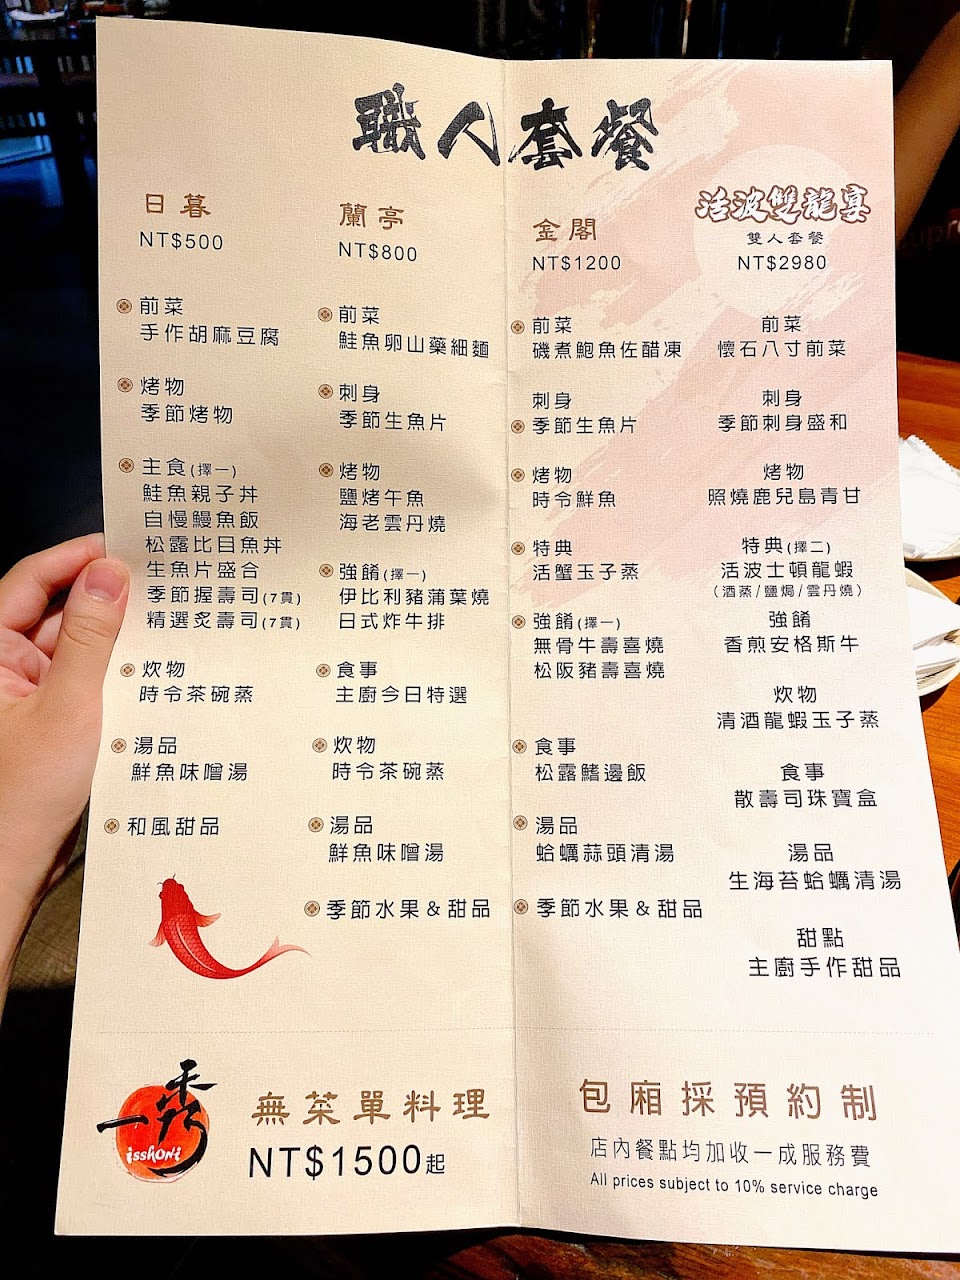 職人套餐
日暮
NT$500
前菜
手作胡麻豆腐
烤物
季節烤物
主食(擇一)
鮭魚親子丼
自慢鰻魚飯
松露比目魚丼
生魚片盛合
季節握壽司(7貫)
精選炙壽司(7貫)
炊物
時令茶碗蒸
湯品
鮮魚味噌湯
和風甜品
蘭亭
NT$800
前菜
鮭魚卵山藥細麵
刺身
季節生魚片
烤物
鹽烤午魚
海老雲丹燒
強餚(擇一)
伊比利豬蒲葉燒
日式炸牛排
食事
主廚今日特選
炊物
時令茶碗蒸
湯品
鮮魚味噌湯
季節水果&甜品
金閣
NT$1200
前菜
磯煮鮑魚佐醋凍
刺身
季節生魚片
烤物
時令鮮魚
特典
活蟹玉子蒸
強餚(擇一)
無骨牛壽喜燒
松阪豬壽喜燒
食事
松露鰭邊飯
湯品
蛤蠣蒜頭清湯
季節水果&甜品
活波雙龍宴
雙人套餐
NT$2980
前菜
懷石八寸前菜
刺身
季節刺身盛和
烤物
照燒鹿兒島青甘
特典(擇二)
活波士頓龍蝦
(酒蒸/鹽焗/雲丹燒)
強餚
香煎安格斯牛
炊物
清酒龍蝦玉子蒸
食事
散壽司珠寶盒
湯品
生海苔蛤蠣清湯
甜點
主廚手作甜品
一秀
isshoni
無菜單料理
NT$1500起
包廂採預約制
店內餐點均加收一成服務費
All prices subject to 10% service charge